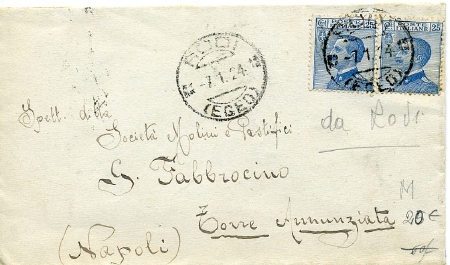 RODI
-7.1.24
(EGEO)
POSTE ITALIANE
25
25
-7.1.24
(EGEO)
Spett. ditta
Società Molini e Pastifici
da Rodi
G. Fabbrocino
M
Torre Annunziata 20€
(Napoli)